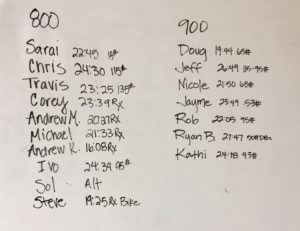 800
Sarai 22:49
Chris 24:30 115#
Travis 23:25 135#
Corey 23:39 Rx
Andrew M. 20:37 Rx
Michael 21:33 Rx
Andrew K. 16:08 Rx
Ivo 24:39 95#
Sol Alt
Steve 19:25 Rx Bike
900
Doug 19:44 65#
Jeff 26:49 115-95#
Nicole 21:50 65#
Jayme 23:49 53#
Rob 22:05 95#
Ryan B 27:47 50#DBs
Kathi 24:18 43#